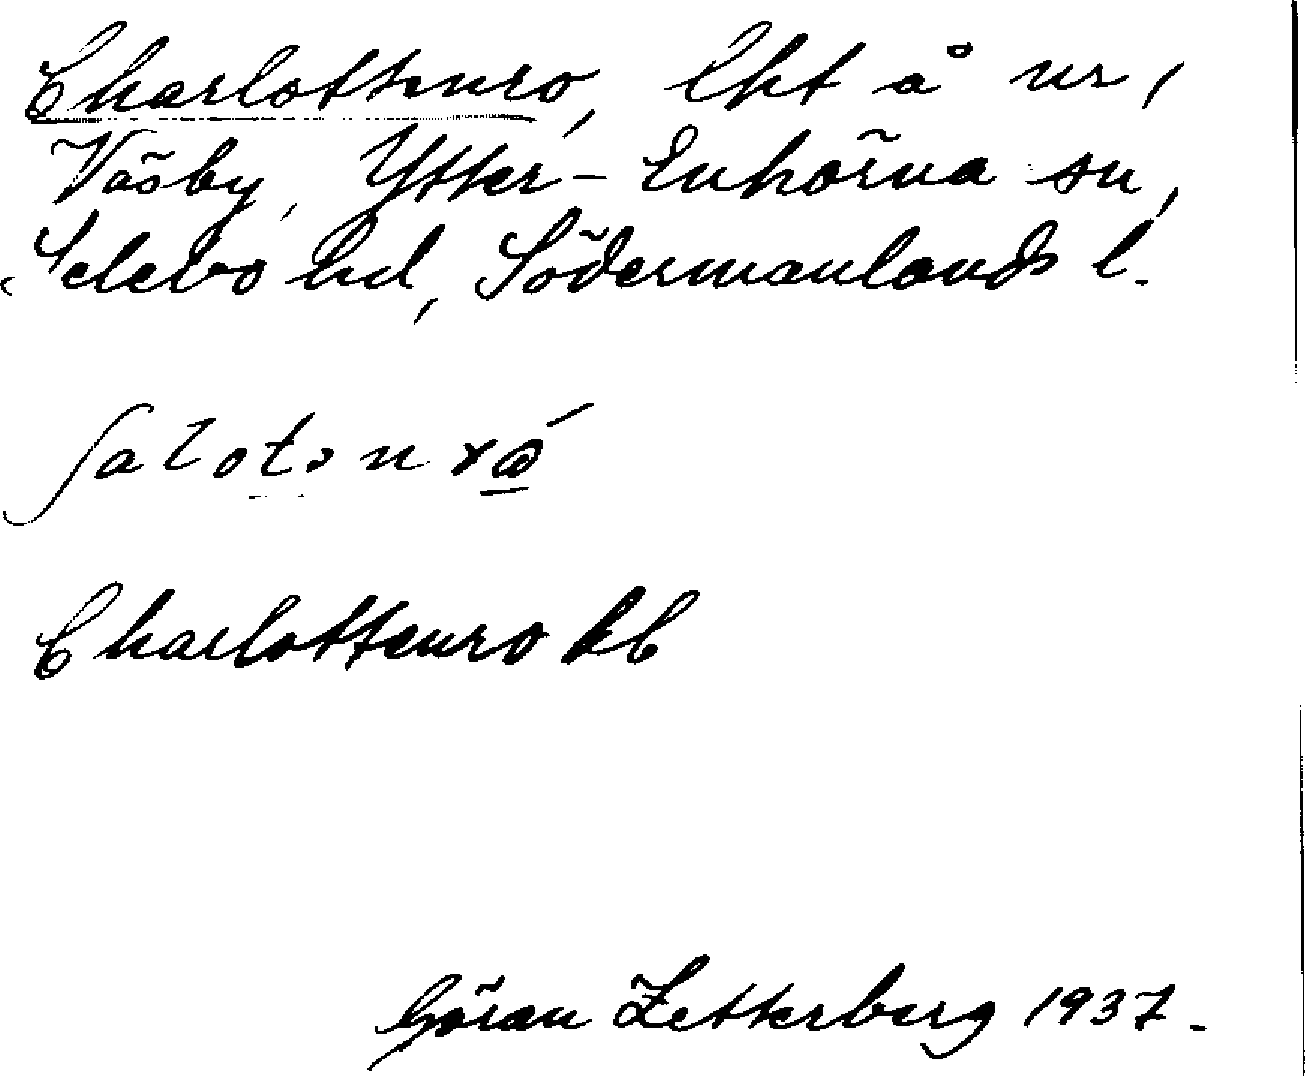 Charlottenro, lht å nr 1
Väsby, Ytter-Enhörna sn,
Selebo hd, Södermanlands l.
Charlottenro kb
Göran Zetterberg 1937.